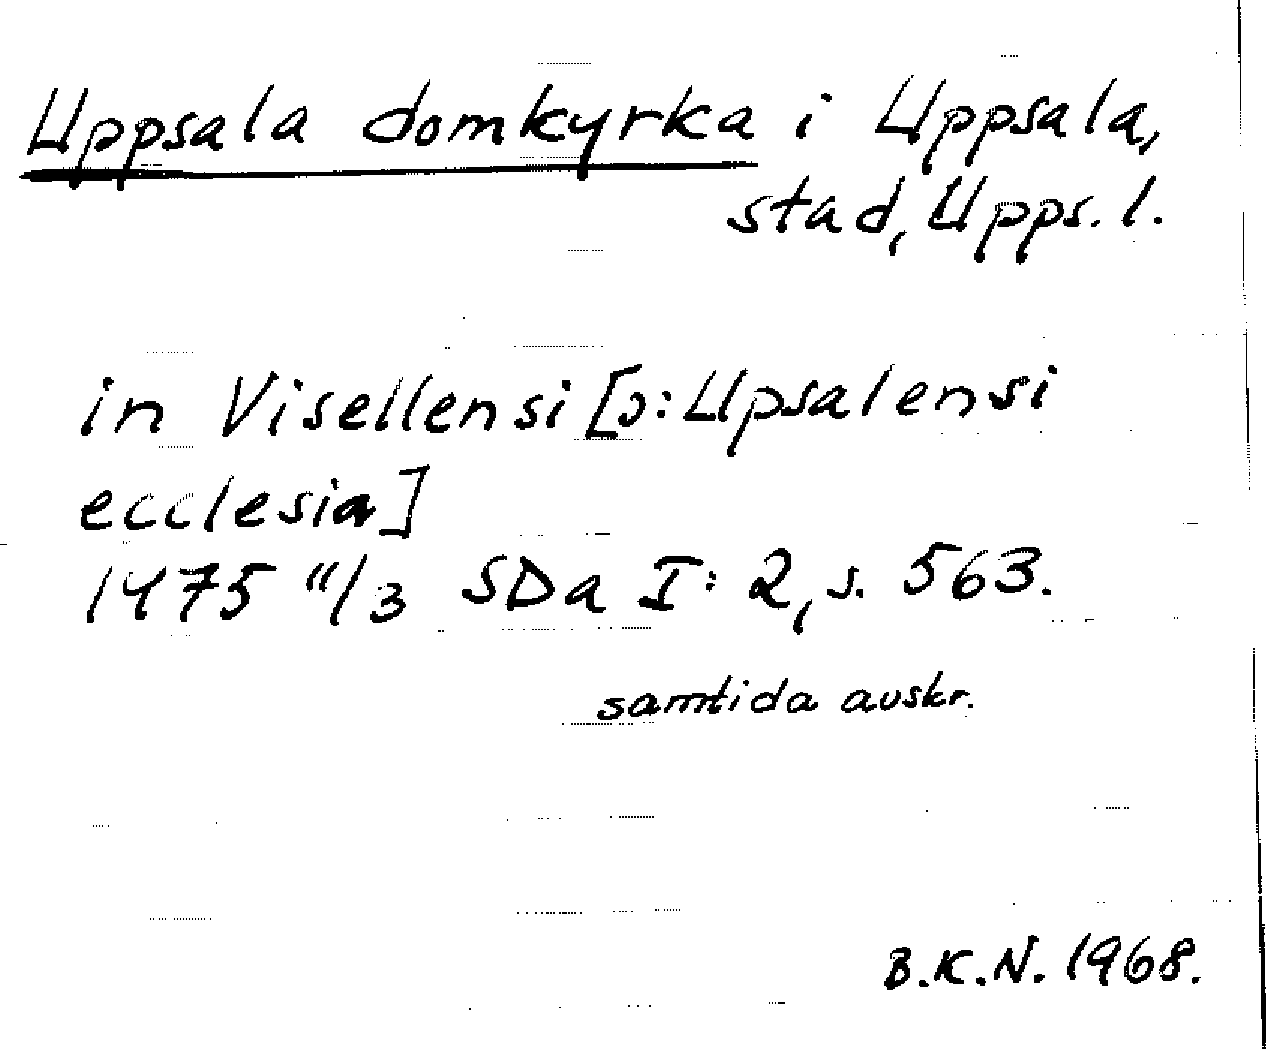 Uppsala domkyrka i Uppsala,
stad, Upps. l.
in Visellensi [ɔ: Upsalensi
ecclesia]
1475 11/3 SDa I: 2, s. 563.
samtida avskr.
B.K.N. 1968.